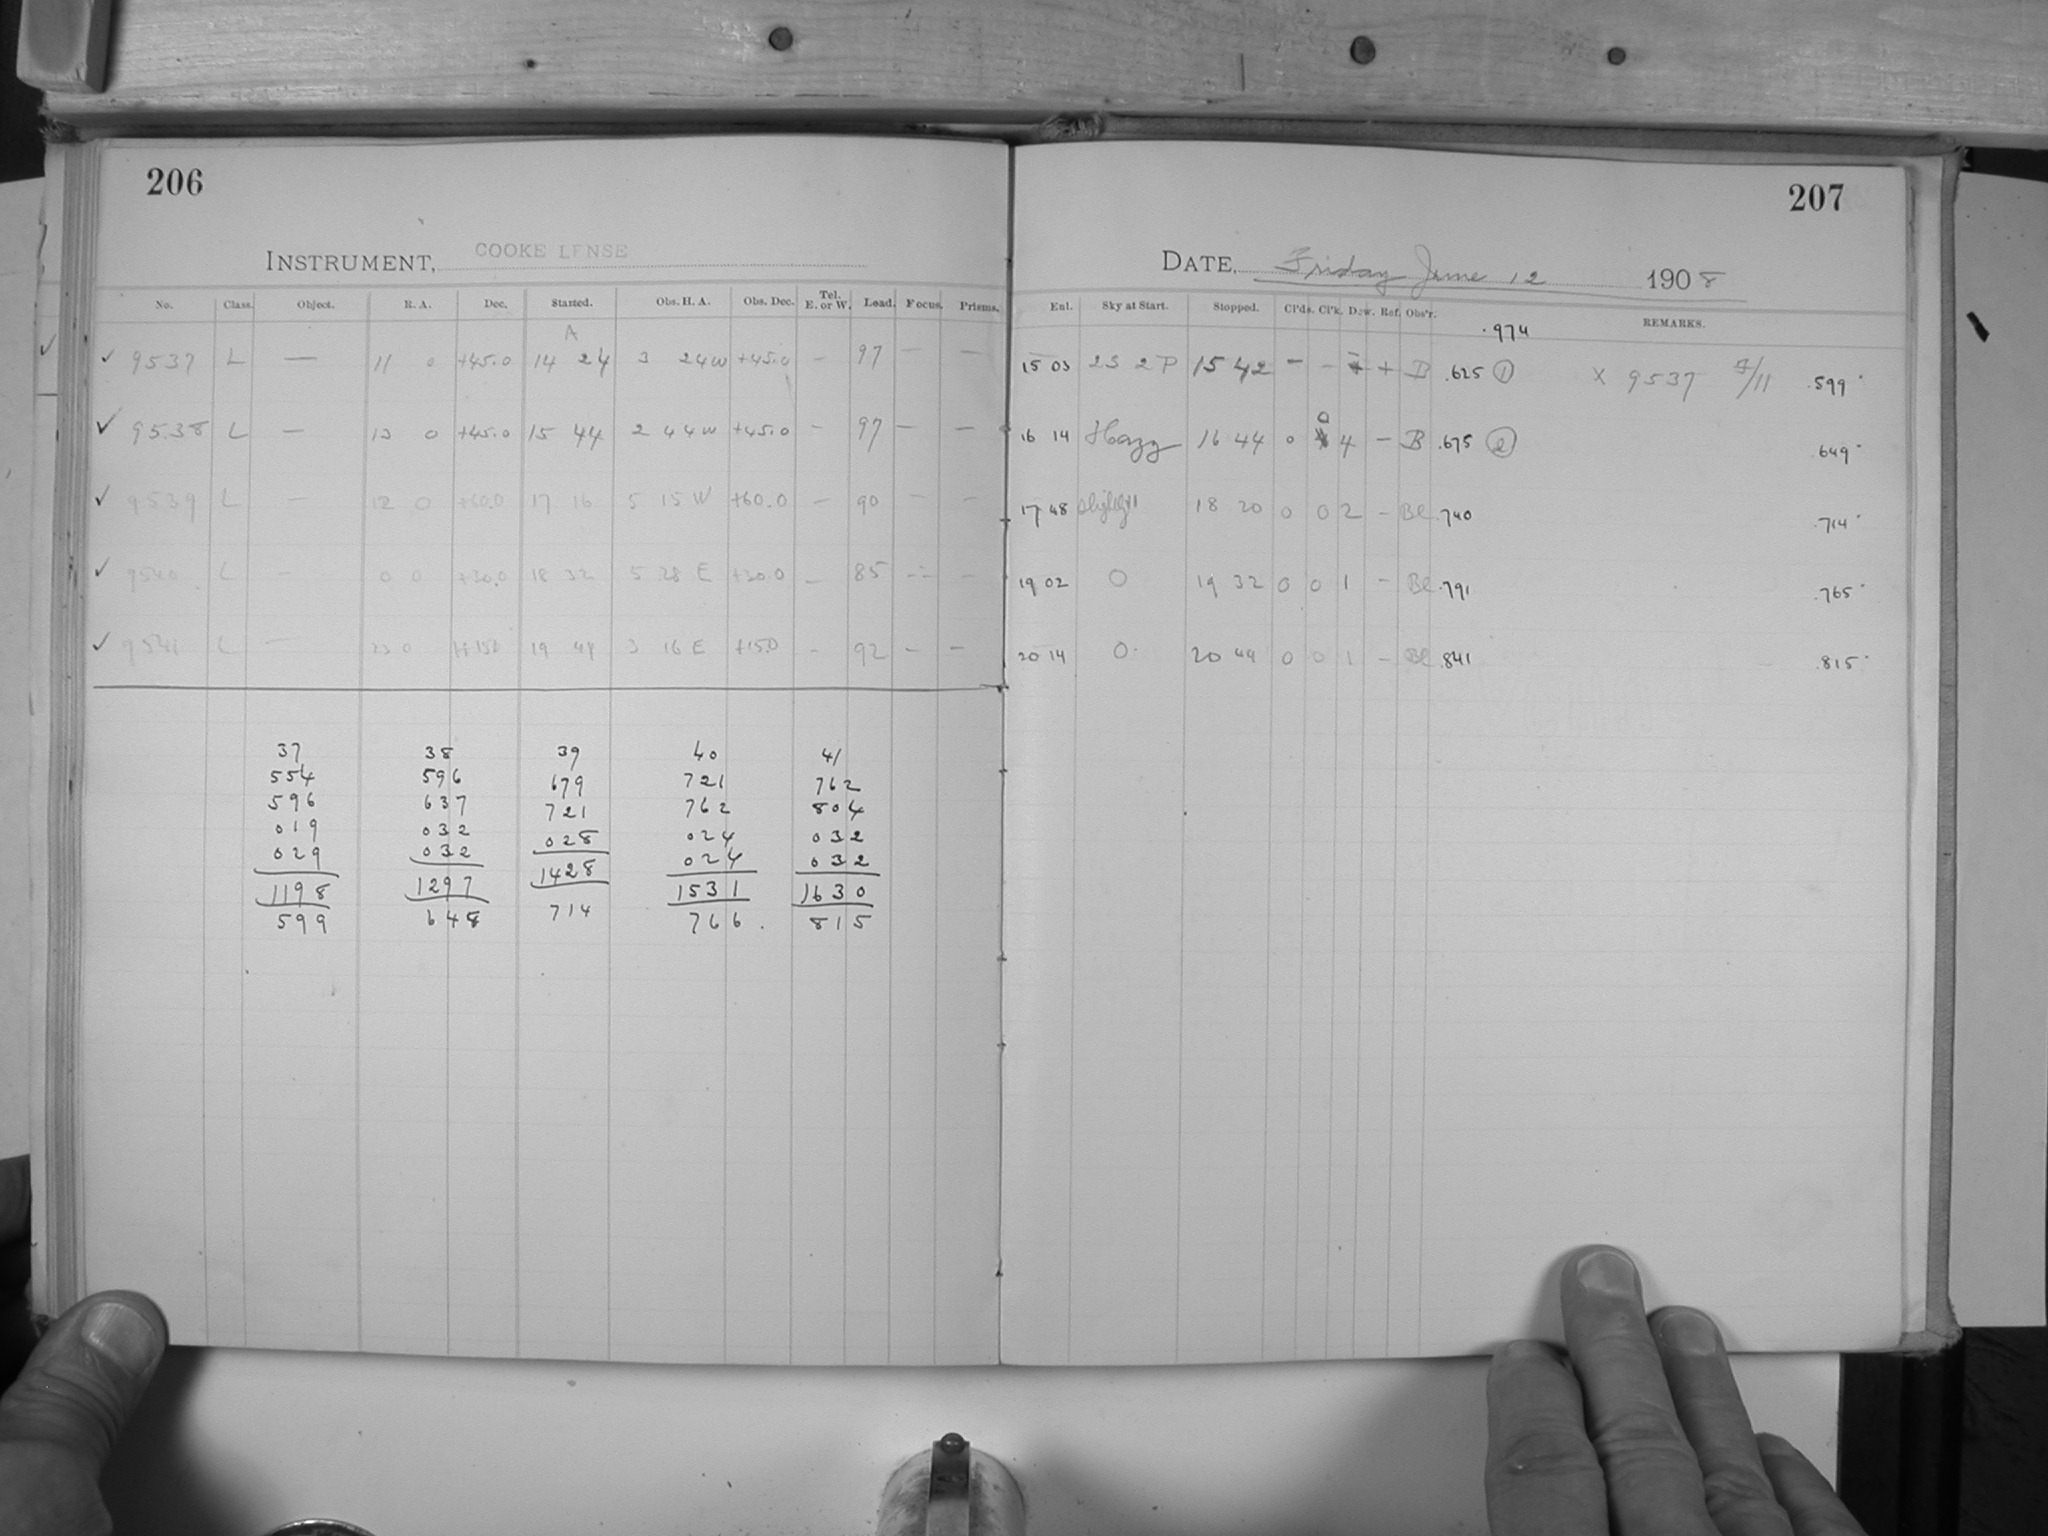 206
INSTRUMENT, COOKE LENSE
No. Class. Object. R. A. Dec. Started. Obs. H. A. Obs. Dec. Tel. E. or W. Load. Focus. Prisms.
A
✓ 9537 L — 11 0 +45.0 14 24 3 24 W +45.0 — 97 — —
✓ 9538 L — 13 0 +45.0 15 44 2 44 W +45.0 — 97 — —
✓ 9539 L — 12 0 +60.0 17 16 5 15 W +60.0 — 90 — —
✓ 9540 L — 0 0 +30.0 18 32 5 28 E +30.0 — 85 — —
✓ 9541 L — 23 0 +15.0 19 44 3 16 E +15.0 — 92 — —
37 38 39 40 41
554 596 679 721 762
596 637 721 762 804
019 032 028 024 032
029 032 024 032
1198 1297 1428 1531 1630
599 648 714 766. 815
207
DATE, Friday June 12 1908
Enl. Sky at Start. Stopped. Cl'ds. Cl'k. Dew. Ref. Obs'r. REMARKS.
.974
15 03 2S 2P 15 42 — — + B .625 (1) X 9537 /11 .599
16 14 Hazy 16 44 0 0 4 — B .675 (2) .649
17 48 18 20 0 0 2 — Bl .740 .714
19 02 0 19 32 0 0 1 — Bl .791 .765
20 14 0 20 44 0 0 1 — Bl .841 .815